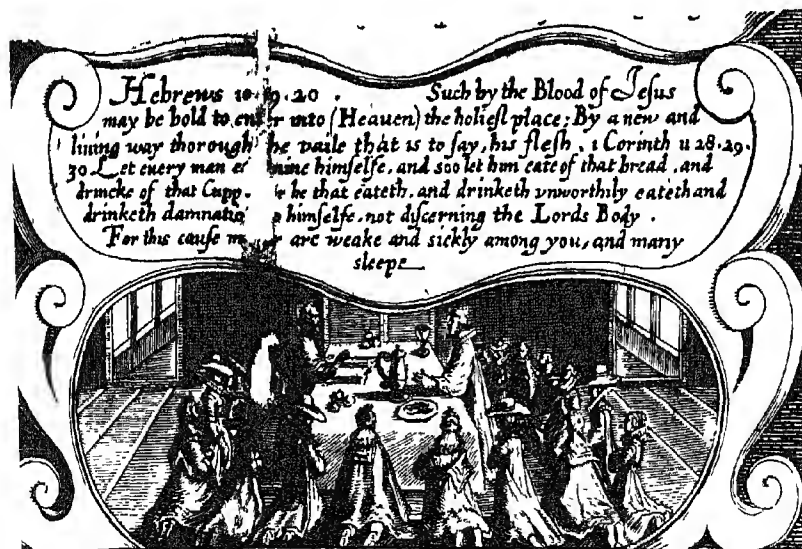 Hebrews 10 19.20. Such by the Blood of Jesus
may be bold to enter into (Heauen) the holiest place; By a new and
liuing way thorough the vaile that is to say, his flesh. 1 Corinth 11 28.29.
30 Let euery man mine himselfe, and soo let him eate of that bread, and
drincke of that Cupp. he that eateth, and drinketh vnworthily eateth and
drinketh damnatio himselfe, not discerning the Lords Body.
For this cause are weake and sickly among you, and many
sleepe